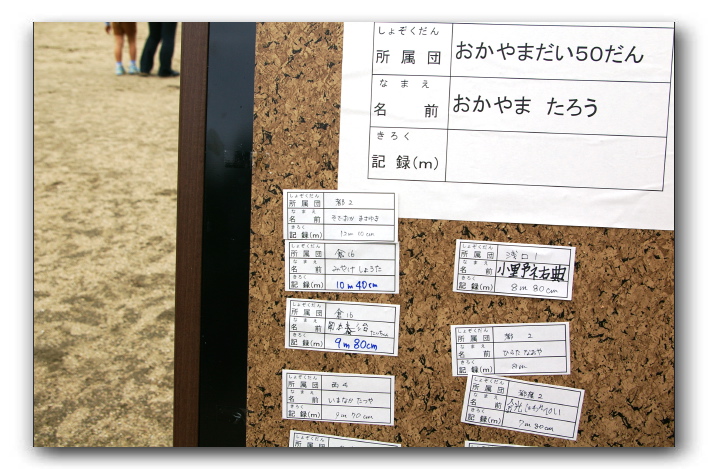 しょぞくだん
所属団 おかやまだい50だん
なまえ
名前 おかやま たろう
きろく
記録(m)
しょぞくだん
所属団 都2
なまえ
名前 まさゆき
きろく
記録(m) 12m 10cm
しょぞくだん
所属団 倉16
なまえ
名前 みやけ しょうた
きろく
記録(m) 10m 40cm
しょぞくだん
所属団 倉16
なまえ
名前
きろく
記録(m) 9m 80cm
しょぞくだん
所属団 西4
なまえ
名前 いまなか たつや
きろく
記録(m) 9m 70cm
しょぞくだん
しょぞくだん
所属団 浅口1
なまえ
名前
きろく
記録(m) 8m 80cm
しょぞくだん
所属団 都 2
なまえ
名前 ひろた なおや
きろく
記録(m) 8m
しょぞくだん
所属団 2
なまえ
名前
きろく
記録(m) 7m 80cm
しょぞくだん